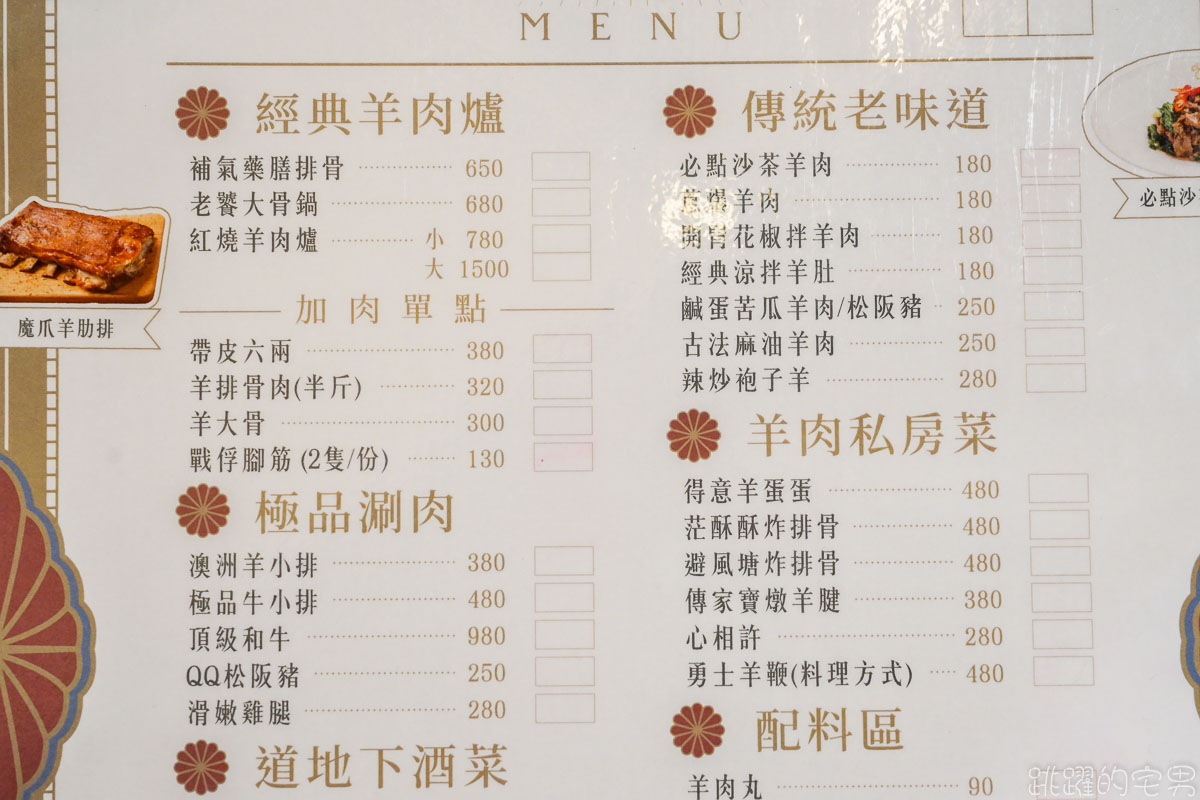 MENU
經典羊肉爐
補氣藥膳排骨 650
老饕大骨鍋 680
紅燒羊肉爐 小 780
大 1500
加肉單點
帶皮六兩 380
羊排骨肉(半斤) 320
羊大骨 300
戰俘腳筋 (2隻/份) 130
極品涮肉
澳洲羊小排 380
極品牛小排 480
頂級和牛 980
QQ松阪豬 250
滑嫩雞腿 280
道地下酒菜
魔爪羊肋排
傳統老味道
必點沙茶羊肉 180
蔥爆羊肉 180
開胃花椒拌羊肉 180
經典涼拌羊肚 180
鹹蛋苦瓜羊肉/松阪豬 250
古法麻油羊肉 250
辣炒袍子羊 280
羊肉私房菜
得意羊蛋蛋 480
茫酥酥炸排骨 480
避風塘炸排骨 480
傳家寶燉羊腱 380
心相許 280
勇士羊鞭(料理方式) 480
配料區
羊肉丸 90
必點沙
跳躍的宅男